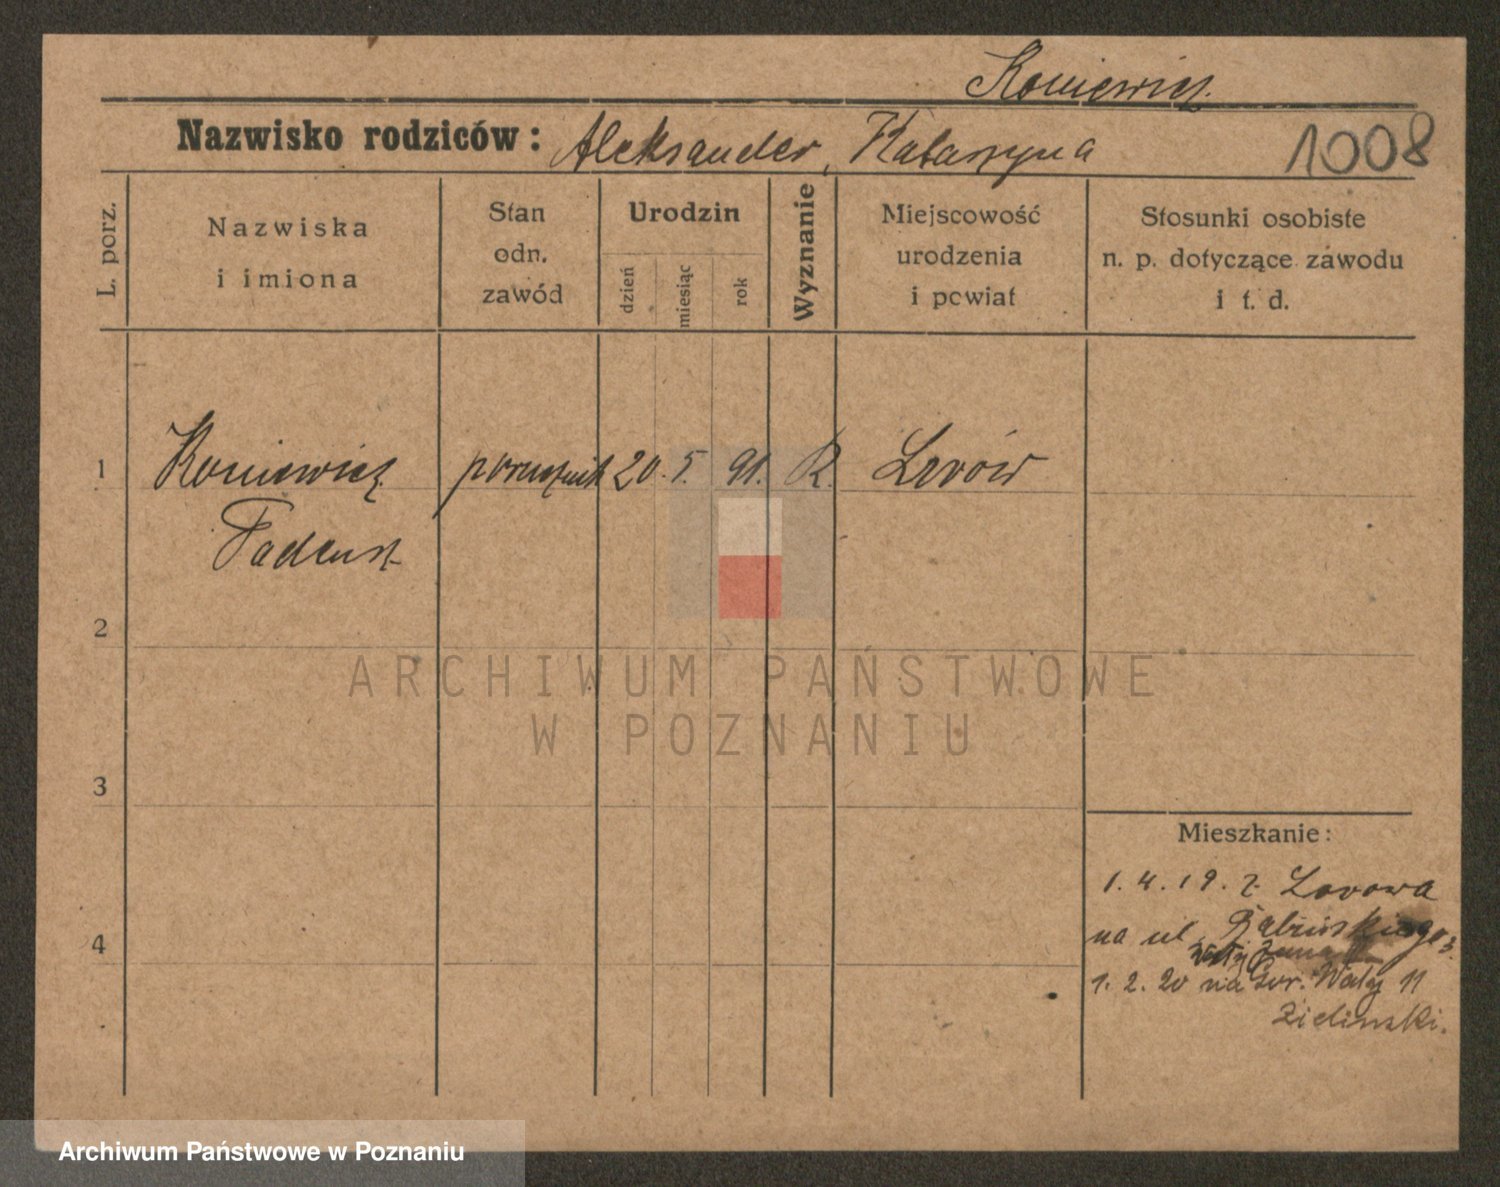 Koniewicz.
Nazwisko rodziców: Aleksander, Katarzyna
1008
L. porz.
Nazwiska
i imiona
Stan
odn.
zawód
Urodzin
dzień
miesiąc
rok
Wyznanie
Miejscowość
urodzenia
i powiat
Stosunki osobiste
n. p. dotyczące zawodu
i t. d.
1 Koniewicz porucznik 20. 5. 91. R. Lwów
Tadeusz
2
3
4
Mieszkanie:
1. 4. 19. z Lwowa
na ul.
1. 2. 20 na Gór. Wały 11
Zieliński.
ARCHIWUM PAŃSTWOWE
W POZNANIU
Archiwum Państwowe w Poznaniu